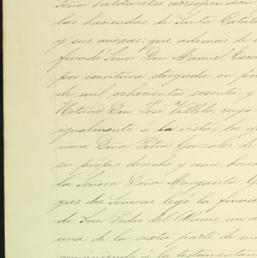 Señor Valdivieso correspondan
las haciendas de Santa Catali
y sus anexas: que ademas de
finado Señor Don Manuel Esca
por escritura otorgada en
de mil ochocientos sesenta y
Notario Don José Villela, cuyo
igualmente a la vista, las
ñora Doña Gonzalez de
su propio derecho y como
la Señora Doña Margarita G
que dos Señoras legó la finada
de San Pedro del un
una de la sexta parte de
á la testamentar